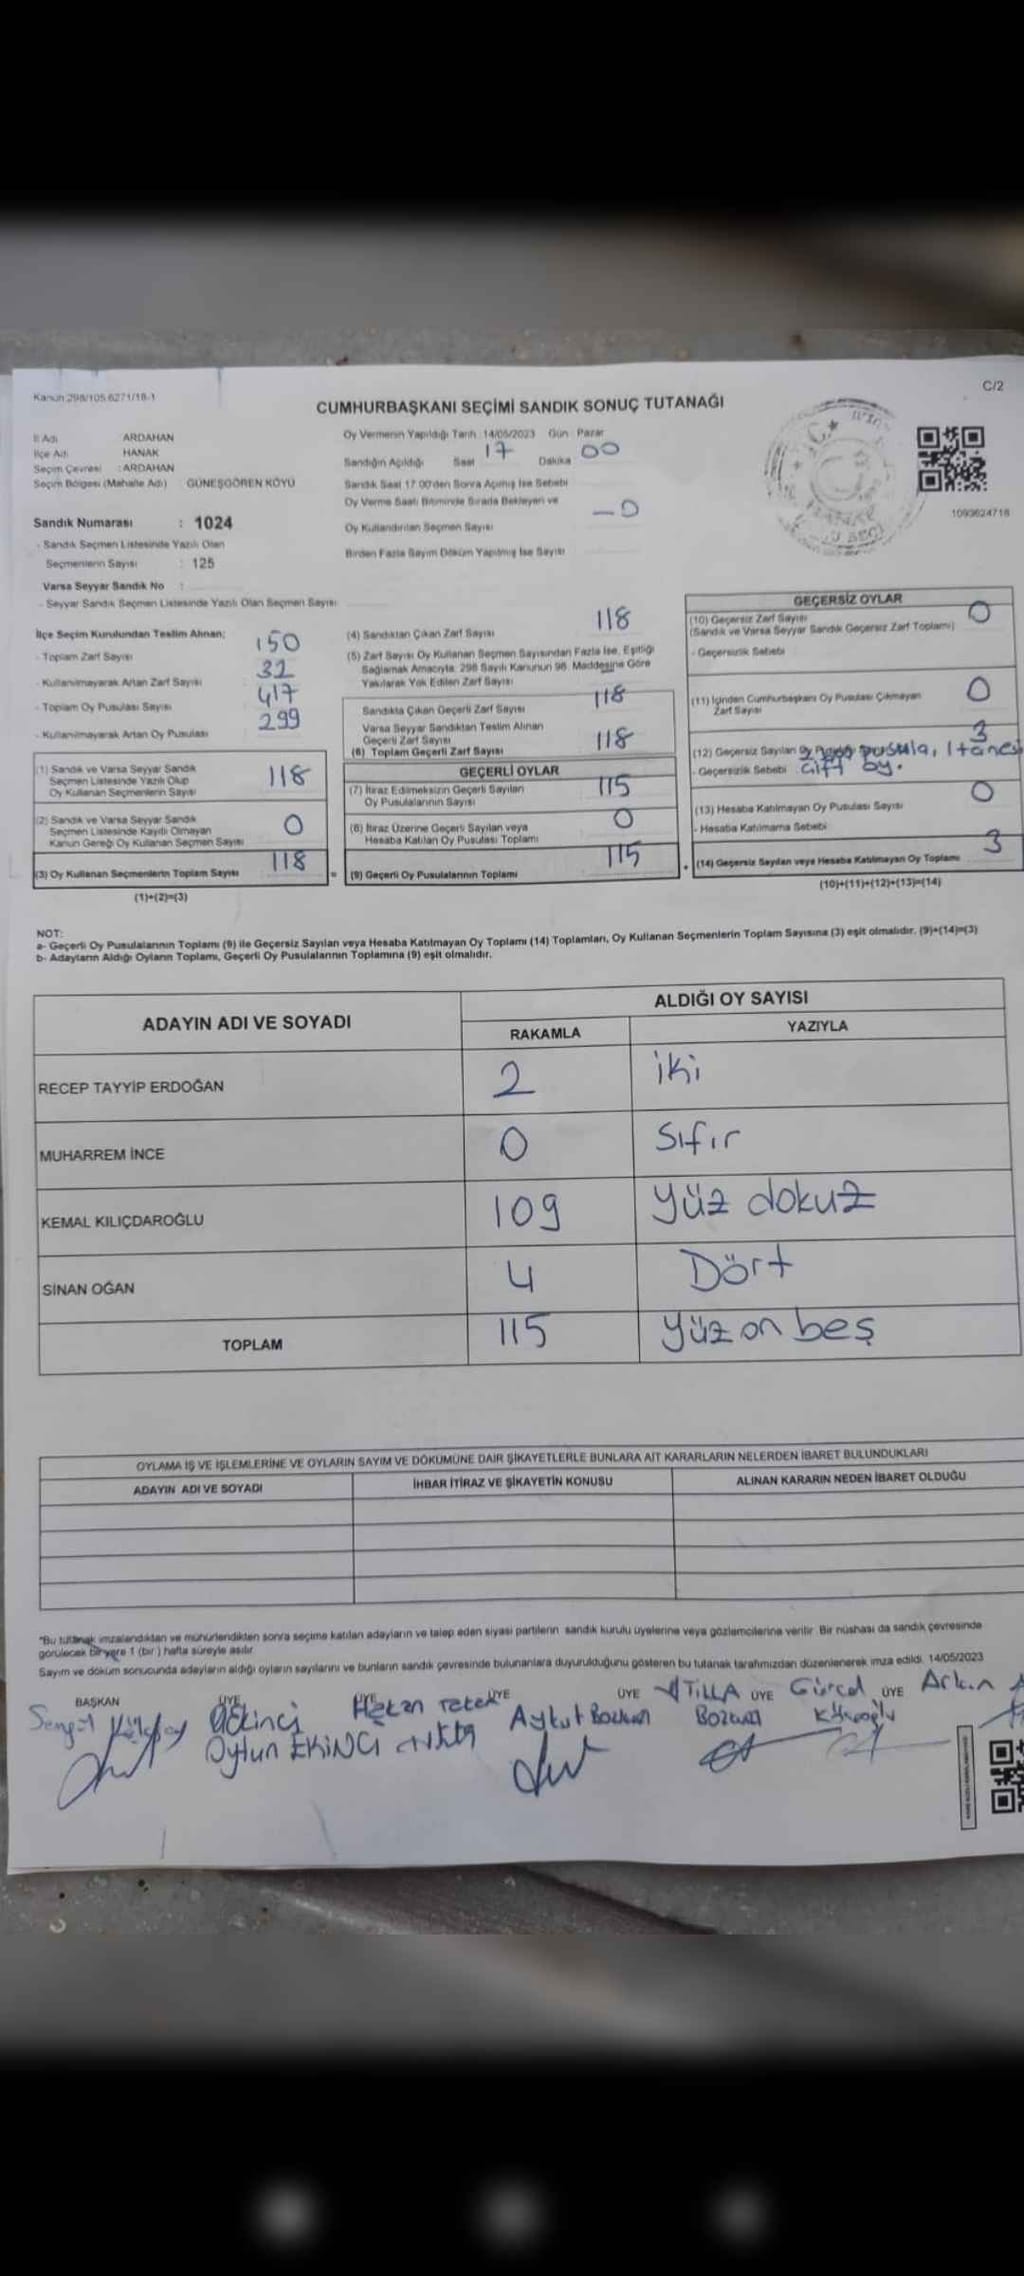 Kanun 298/105 6271/18-1
C/2
CUMHURBAŞKANI SEÇİMİ SANDIK SONUÇ TUTANAĞI
İl Adı ARDAHAN
İlçe Adı HANAK
Seçim Çevresi : ARDAHAN
Seçim Bölgesi (Mahalle Adı) GÜNEŞGÖREN KÖYÜ
Oy Vermenin Yapıldığı Tarih 14/05/2023 Gün Pazar
Sandığın Açıldığı Saat 17 Dakika 00
Sandık Saat 17.00'den Sonra Açılmış İse Sebebi
Oy Verme Saati Bitiminde Sırada Bekleyen ve
Oy Kullandırılan Seçmen Sayısı - 0
Birden Fazla Sayım Döküm Yapılmış İse Sayısı
1093624718
Sandık Numarası : 1024
- Sandık Seçmen Listesinde Yazılı Olan
Seçmenlerin Sayısı : 125
Varsa Seyyar Sandık No :
- Seyyar Sandık Seçmen Listesinde Yazılı Olan Seçmen Sayısı
İlçe Seçim Kurulundan Teslim Alınan;
- Toplam Zarf Sayısı 150
- Kullanılmayarak Artan Zarf Sayısı 32
- Toplam Oy Pusulası Sayısı 417
- Kullanılmayarak Artan Oy Pusulası 299
(1) Sandık ve Varsa Seyyar Sandık
Seçmen Listesinde Yazılı Olup
Oy Kullanan Seçmenlerin Sayısı 118
(2) Sandık ve Varsa Seyyar Sandık
Seçmen Listesinde Kayıtlı Olmayan
Kanun Gereği Oy Kullanan Seçmen Sayısı 0
(3) Oy Kullanan Seçmenlerin Toplam Sayısı 118
(1)+(2)=(3)
(4) Sandıktan Çıkan Zarf Sayısı 118
(5) Zarf Sayısı Oy Kullanan Seçmen Sayısından Fazla İse, Eşitliği
Sağlamak Amacıyla, 298 Sayılı Kanunun 98. Maddesine Göre
Yakılarak Yok Edilen Zarf Sayısı
Sandıkta Çıkan Geçerli Zarf Sayısı 118
Varsa Seyyar Sandıktan Teslim Alınan
Geçerli Zarf Sayısı
(6) Toplam Geçerli Zarf Sayısı 118
GEÇERLİ OYLAR
(7) İtiraz Edilmeksizin Geçerli Sayılan
Oy Pusulalarının Sayısı 115
(8) İtiraz Üzerine Geçerli Sayılan veya
Hesaba Katılan Oy Pusulası Toplamı 0
= (9) Geçerli Oy Pusulalarının Toplamı 115
GEÇERSİZ OYLAR
(10) Geçersiz Zarf Sayısı 0
(Sandık ve Varsa Seyyar Sandık Geçersiz Zarf Toplamı)
- Geçersizlik Sebebi
(11) İçinden Cumhurbaşkanı Oy Pusulası Çıkmayan
Zarf Sayısı 0
(12) Geçersiz Sayılan Oy pusula, 1 tanesi 3
- Geçersizlik Sebebi çift oy.
(13) Hesaba Katılmayan Oy Pusulası Sayısı 0
- Hesaba Katılmama Sebebi
+ (14) Geçersiz Sayılan veya Hesaba Katılmayan Oy Toplamı 3
(10)+(11)+(12)+(13)=(14)
NOT:
a- Geçerli Oy Pusulalarının Toplamı (9) ile Geçersiz Sayılan veya Hesaba Katılmayan Oy Toplamı (14) Toplamları, Oy Kullanan Seçmenlerin Toplam Sayısına (3) eşit olmalıdır. (9)+(14)=(3)
b- Adayların Aldığı Oyların Toplamı, Geçerli Oy Pusulalarının Toplamına (9) eşit olmalıdır.
ADAYIN ADI VE SOYADI
ALDIĞI OY SAYISI
RAKAMLA YAZIYLA
RECEP TAYYİP ERDOĞAN 2 iki
MUHARREM İNCE 0 Sıfır
KEMAL KILIÇDAROĞLU 109 yüz dokuz
SİNAN OĞAN 4 Dört
TOPLAM 115 yüz on beş
OYLAMA İŞ VE İŞLEMLERİNE VE OYLARIN SAYIM VE DÖKÜMÜNE DAİR ŞİKAYETLERLE BUNLARA AİT KARARLARIN NELERDEN İBARET BULUNDUKLARI
ADAYIN ADI VE SOYADI İHBAR İTİRAZ VE ŞİKAYETİN KONUSU ALINAN KARARIN NEDEN İBARET OLDUĞU
*Bu tutanak imzalandıktan ve mühürlendikten sonra seçime katılan adayların ve talep eden siyasi partilerin sandık kurulu üyelerine veya gözlemcilerine verilir. Bir nüshası da sandık çevresinde
görülecek bir yere 1 (bir) hafta süreyle asılır.
Sayım ve döküm sonucunda adayların aldığı oyların sayılarını ve bunların sandık çevresinde bulunanlara duyurulduğunu gösteren bu tutanak tarafımızdan düzenlenerek imza edildi. 14/05/2023
BAŞKAN ÜYE ÜYE ÜYE ÜYE ÜYE
Oytun EKİNCİ
Aykut Bozkurt
ATİLLA
Gürsel